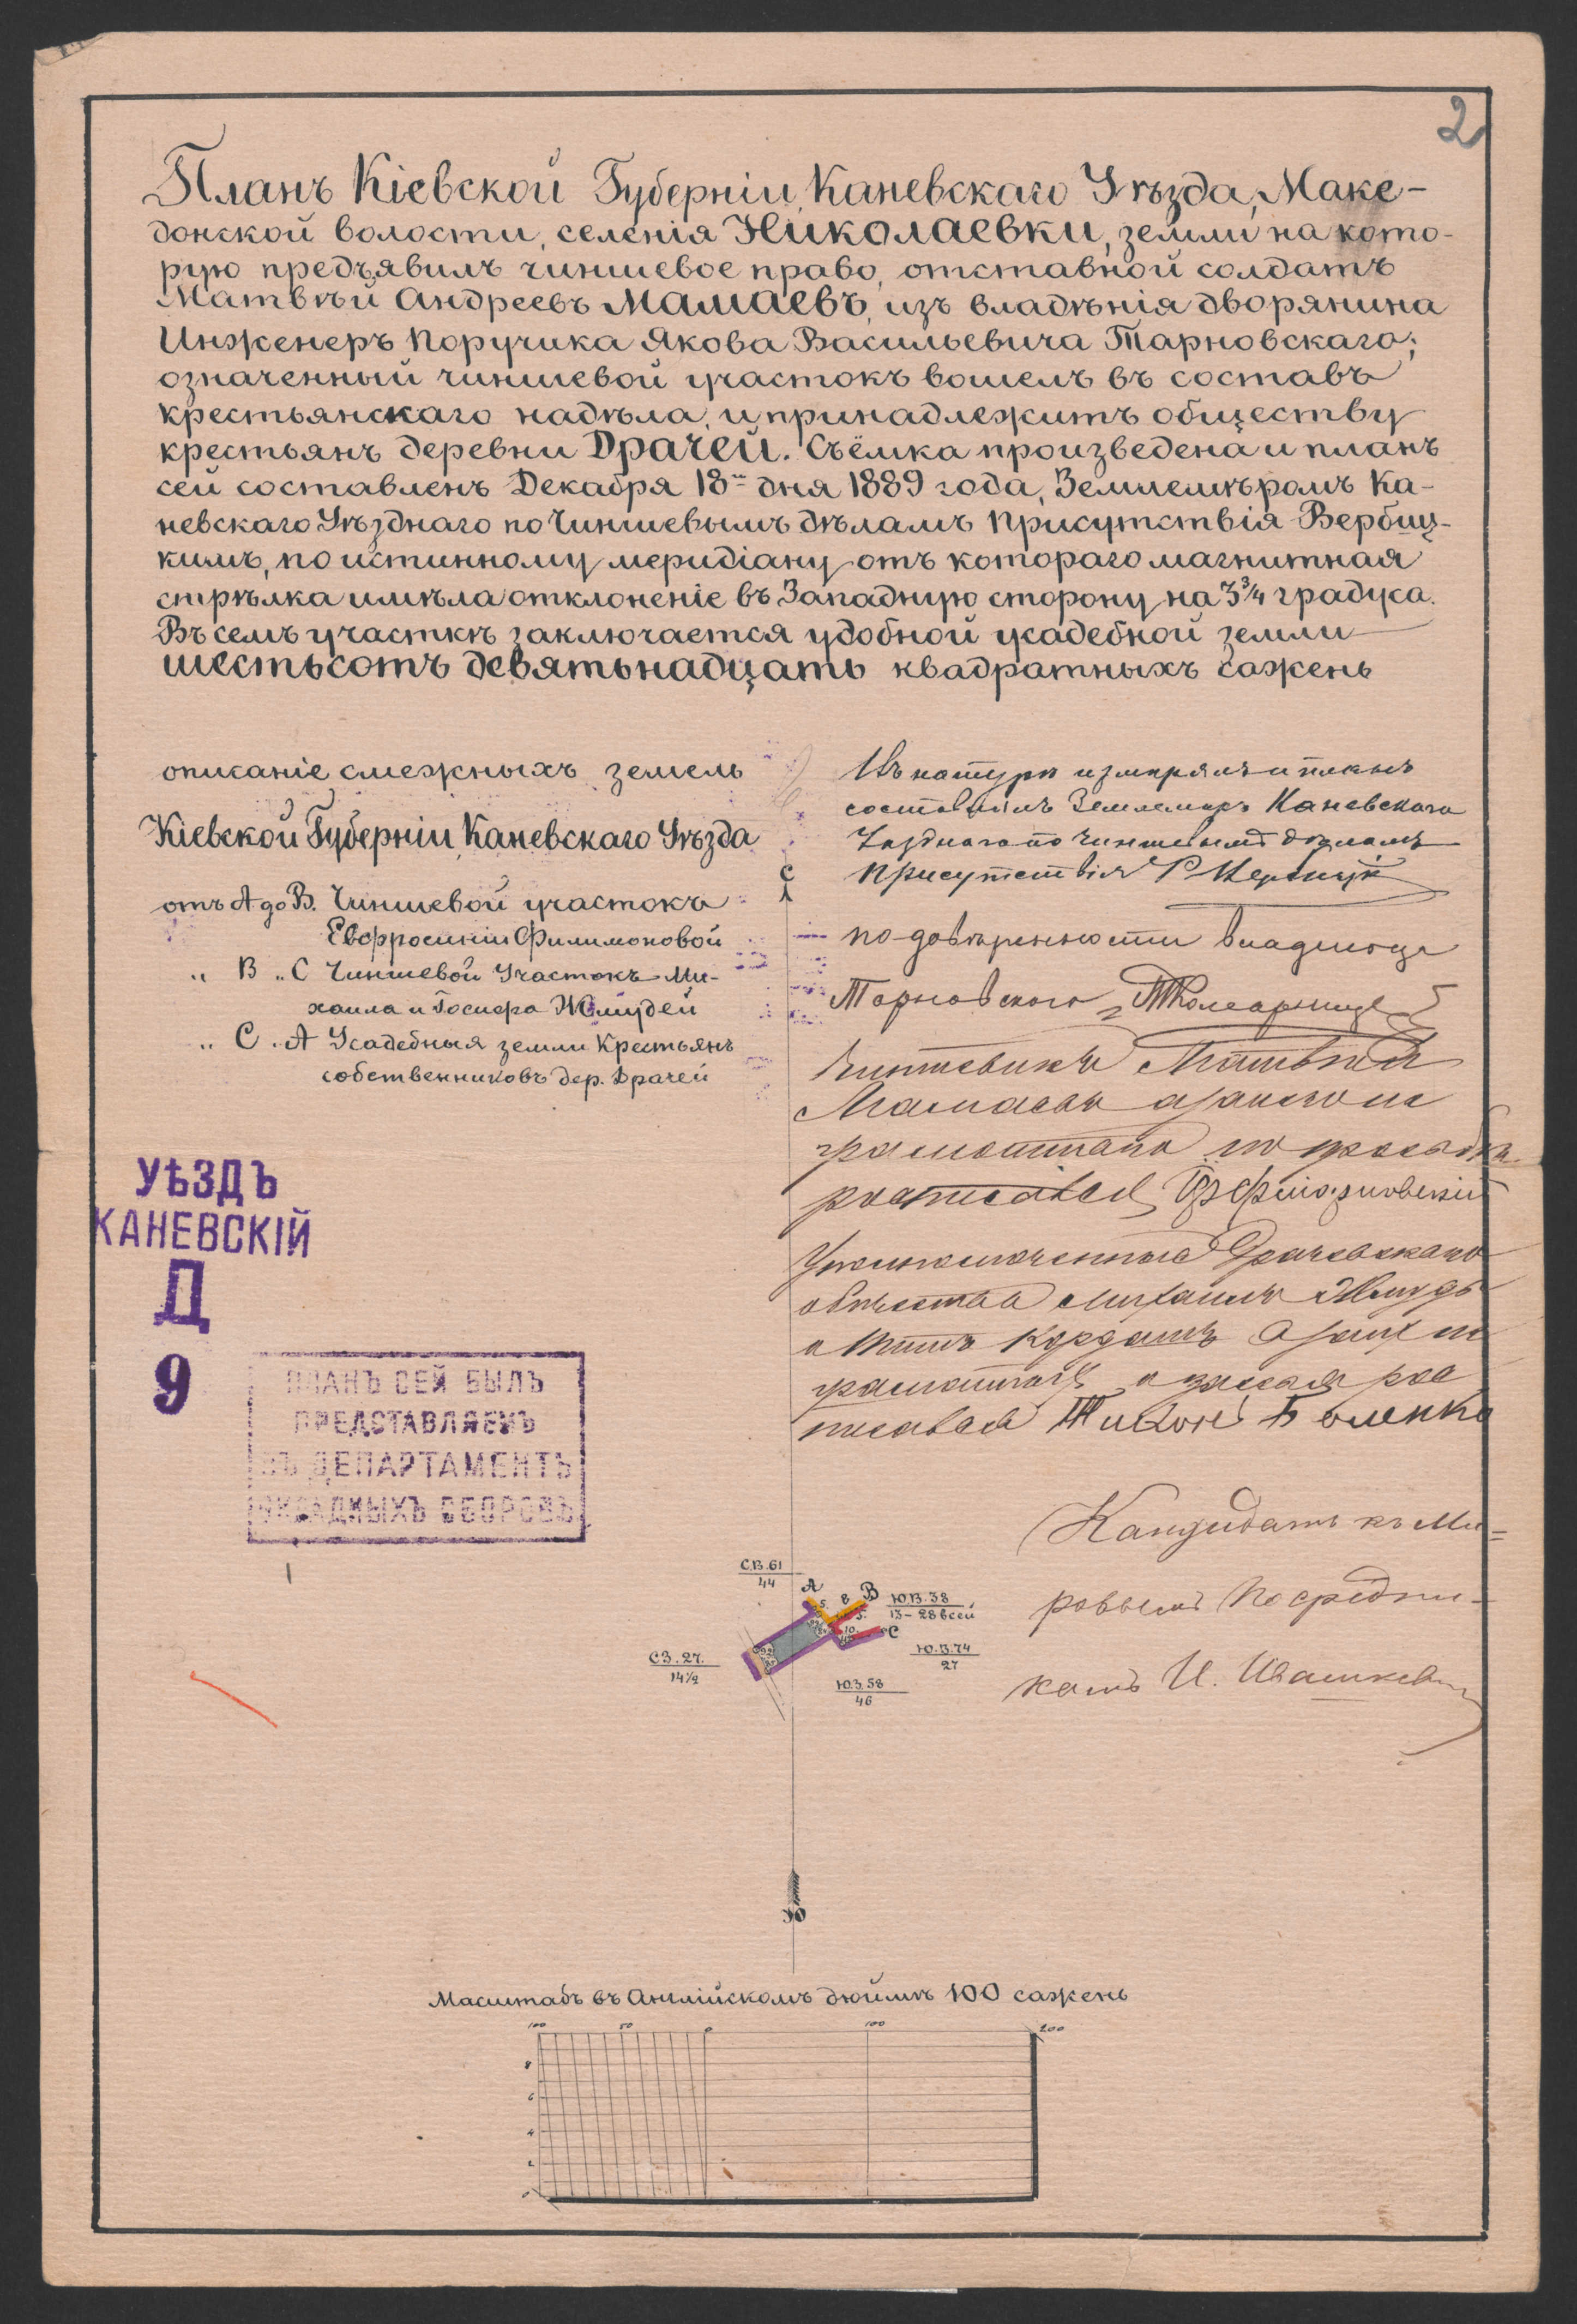 2
Планъ Кіевской Губерніи, Каневскаго Уѣзда, Маке-
донской волости, селенія Николаевки, земли на кото-
рую предъявилъ чиншевое право, отставной солдатъ
Матвѣй Андреевъ Мамаевъ, изъ владѣнія дворянина
Инженеръ Поручика Якова Васильевича Тарновскаго;
означенный чиншевой участокъ вошелъ въ составъ
крестьянскаго надѣла, и принадлежитъ обществу
крестьянъ деревни Драчей. Съёмка произведена и планъ
сей составленъ Декабря 18го дня 1889 года, Землемѣромъ Ка-
невскаго Уѣзднаго по Чиншевымъ дѣламъ Присутствія Вербиц-
кимъ, по истинному меридіану отъ котораго магнитная
стрѣлка имѣла отклоненіе въ Западную сторону на 3¾ градуса.
Въ семъ участкѣ заключается удобной усадебной земли
шестьсотъ девятьнадцать квадратныхъ сажень
описаніе смежныхъ земель
Кіевской Губерніи, Каневскаго Уѣзда
отъ А до В. Чиншевой участокъ
Евфросиніи Филимоновой
„ В „ С Чиншевой Участокъ Ми-
хаила и Іосифа Жмудей
„ С „ А Усадебныя земли Крестьянъ
собственниковъ дер. Драчей
Въ натурѣ измѣрялъ и планъ
составилъ Землемѣръ Каневскаго
Уѣзднаго по Чиншевымъ дѣламъ
Присутствія
С
по довѣренности владѣльца
Тарновского
Чиншевикъ Матвѣй
Мамаевъ а за него не
грамотнаго по просьбѣ
росписался
Уполномоченные Драчевскаго
общества Михаилъ Жмудь
а за нихъ не
грамотныхъ и за себя рос
писался Тихон
Кандидатъ къ Ми-
ровымъ Посредни-
камъ И. Ивашкевич
УѢЗДЪ
КАНЕВСКІЙ
Д
9
ПЛАНЪ СЕЙ БЫЛЪ
ПРЕДСТАВЛЯЕМЪ
ВЪ ДЕПАРТАМЕНТЪ
ОКЛАДНЫХЪ СБОРОВЪ
С.В. 61
44
А
8
В
5
Ю.В. 38
13 - 28 всей
С
10
Ю.В. 74
27
С.З. 27.
14½
Ю.З. 58
46
Ю
Масштабъ въ Англійскомъ дюймѣ 100 сажень
100 50 0 100 200
8
6
4
2
0